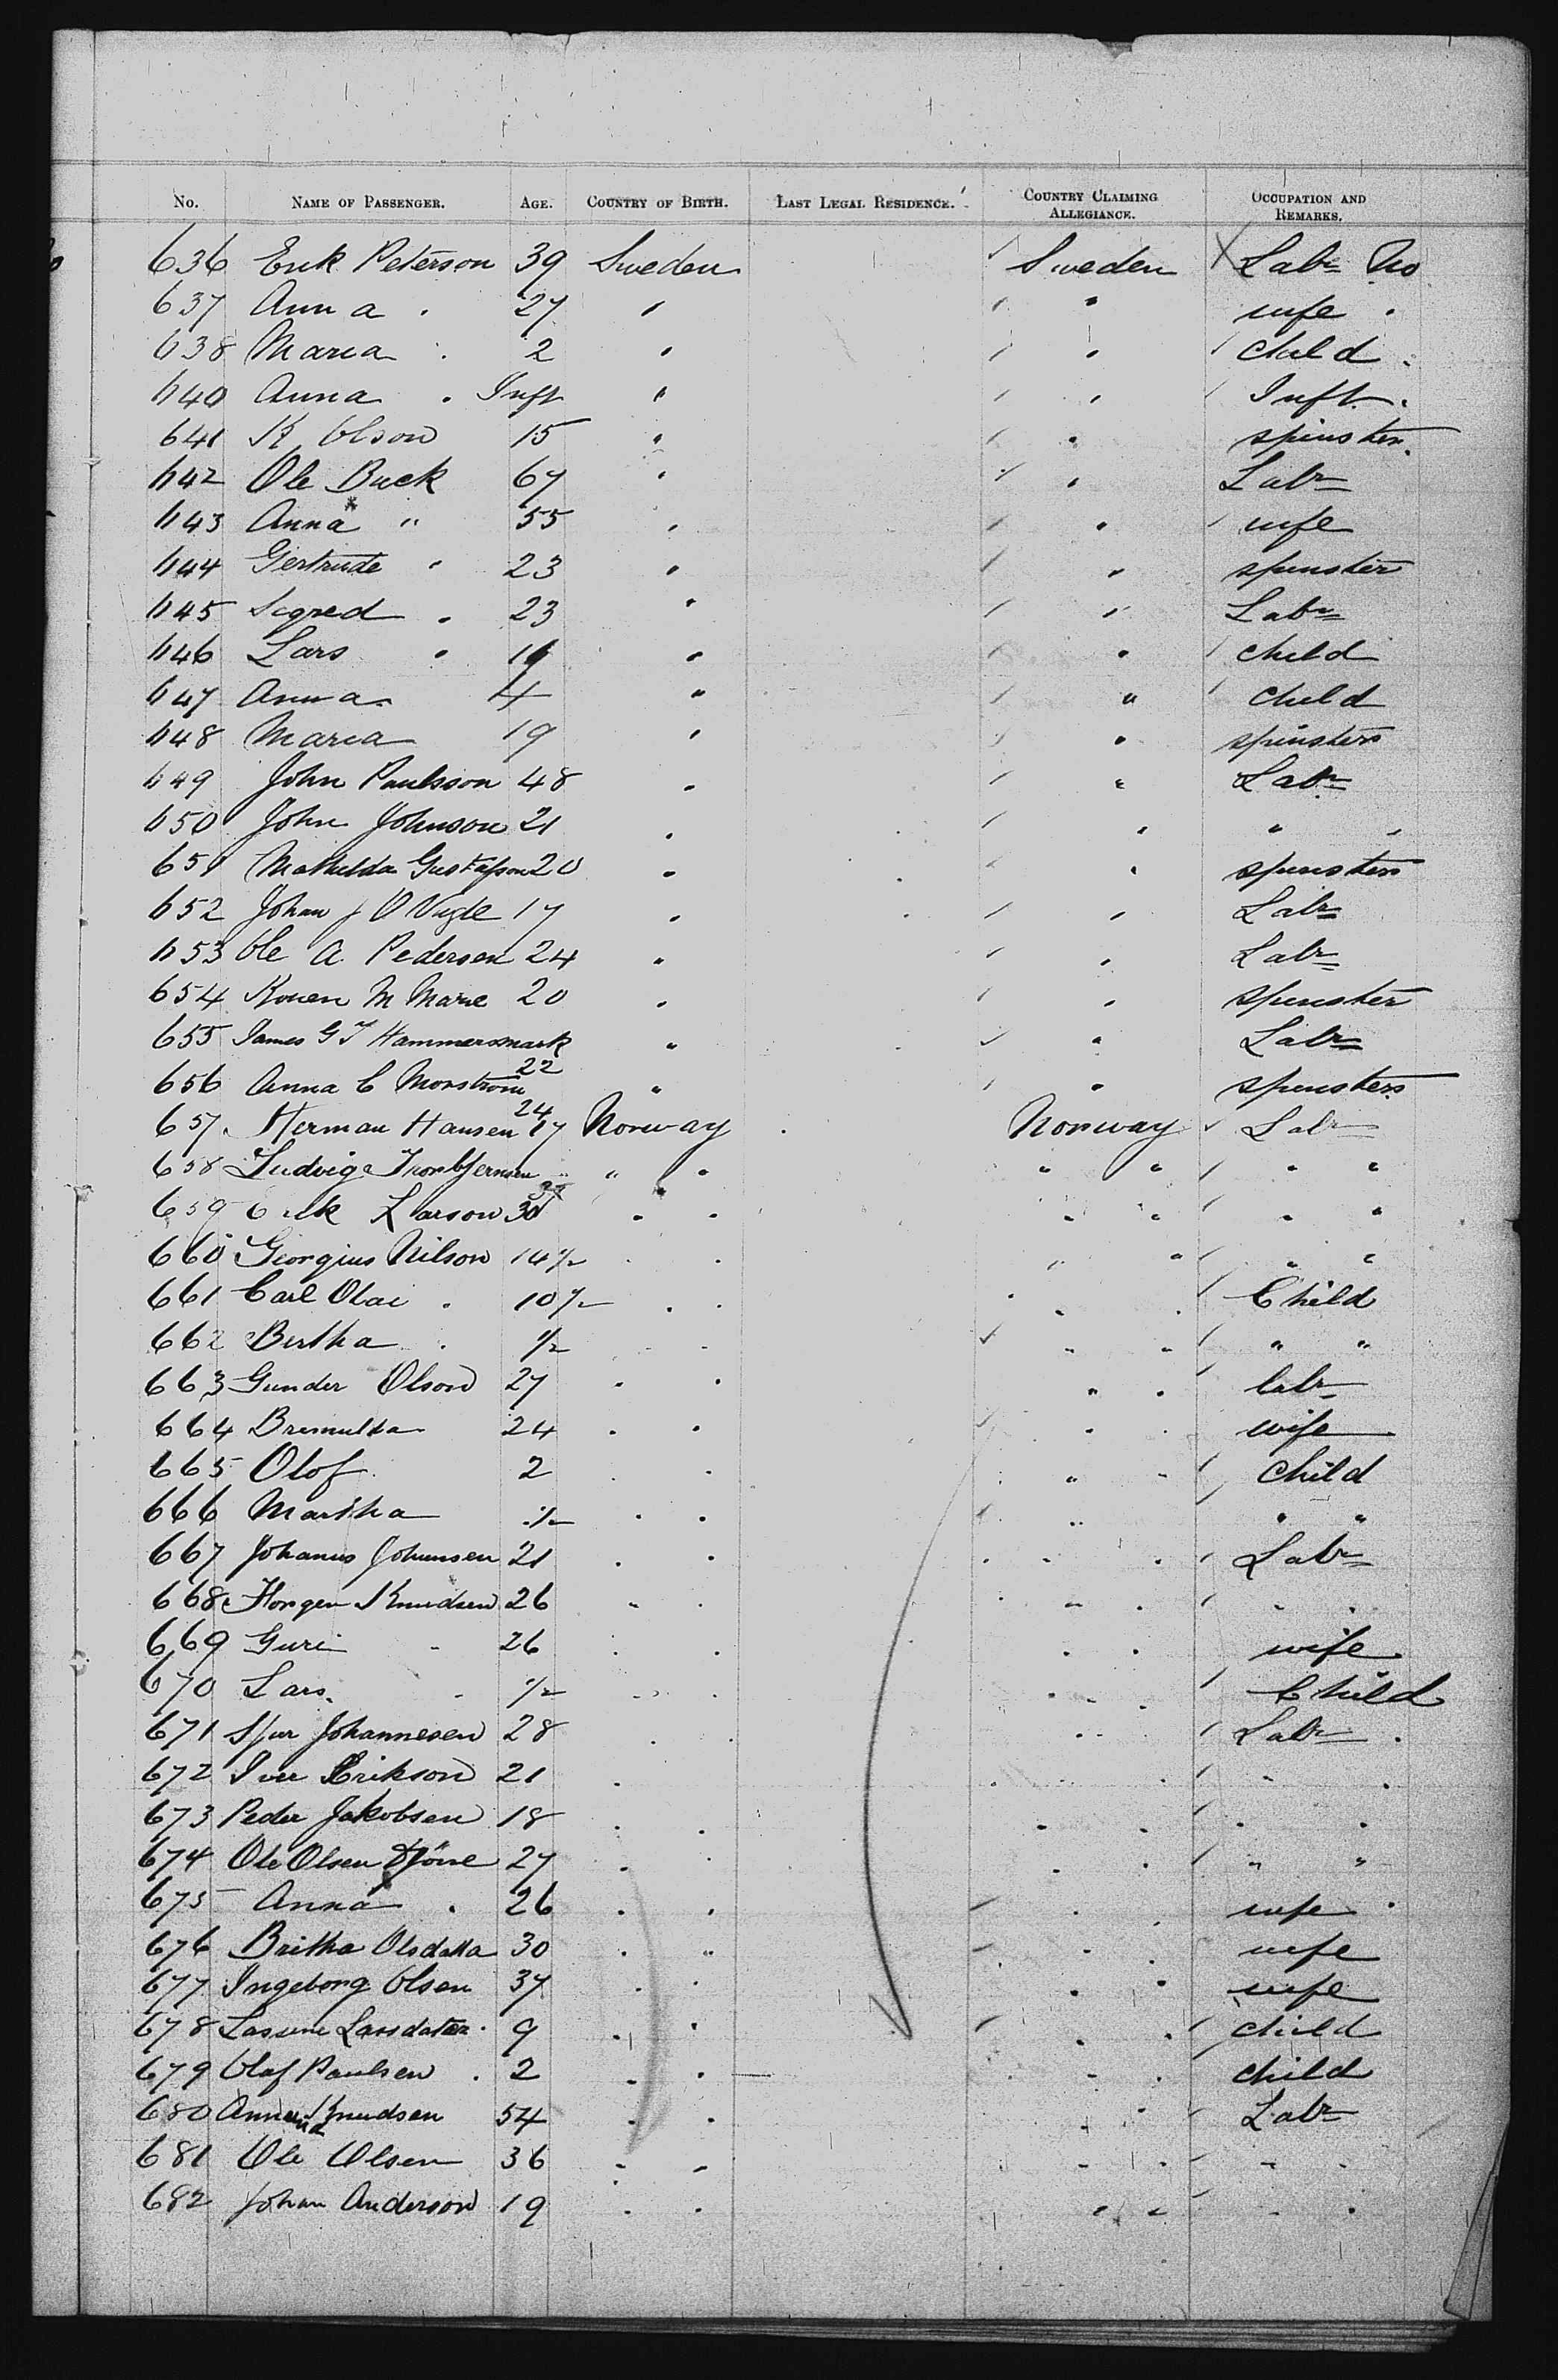 No. NAME OF PASSENGER. AGE. COUNTRY OF BIRTH. LAST LEGAL RESIDENCE. COUNTRY CLAIMING ALLEGIANCE. OCCUPATION AND REMARKS.
636 Erik Peterson 39 Sweden Sweden Labr No
637 Anna . 27 " " wife "
638 Maria . 2 " " child .
640 Anna . Inft " " Inft. .
641 K Olson 15 " " spinster
642 Ole Buck 67 " " Labr
643 Anna " 55 " " wife
644 Gertrude " 23 " " spinster
645 Segred " 23 " " Labr
646 Lars " 19 " " child
647 Anna 4 " " child
648 Maria 19 " " spinster
649 John Paulsson 48 " " Labr
650 John Johnson 21 " " " "
651 Mathilda Gustafson 20 " " spinster
652 Johan J O 17 " " Labr
653 Ole A. Pedersen 24 " " Labr
654 M Marie 20 " " spinster
655 James G Hammersmark 22 " " Labr
656 Anna C Morstrom 24 " " spinster
657 Herman Hansen 17 Norway Norway Labr
658 Ludvig " " " " " "
659 Erik Larson 30 " " " " " "
660 Georgius Nilson 14 1/2 " " " " " "
661 Carl Olai . 10 1/2 " " " " Child
662 Bertha . 1/2 " " " " " "
663 Gunder Olson 27 " " " " labr
664 24 " " " " wife
665 Olof 2 " " " " child
666 Martha 1/2 " " " " " "
667 Johanus Johunsen 21 " " " " Labr
668 Horgen Knudsen 26 " " " " " "
669 Guri " 26 " " " " wife
670 Lars. " 1/2 " " " " Child
671 Johannesen 28 " " " " Labr .
672 Iver Erikson 21 " " " " "
673 Peder Jakobsen 18 " " " " " "
674 Ole Olsen 27 " " " " " "
675 Anna . 26 " " " " wife
676 Britha Olsdatta 30 " " " " wife
677 Ingeborg Olsen 37 " " " wife
678 Larsdater 9 " " " " child
679 Olaf Paulsen . 2 " " " " child
680 Knudsen 54 " " " Labr
681 Ole Olsen 36 " " " " " "
682 Johan Anderson 19 " " " " " "